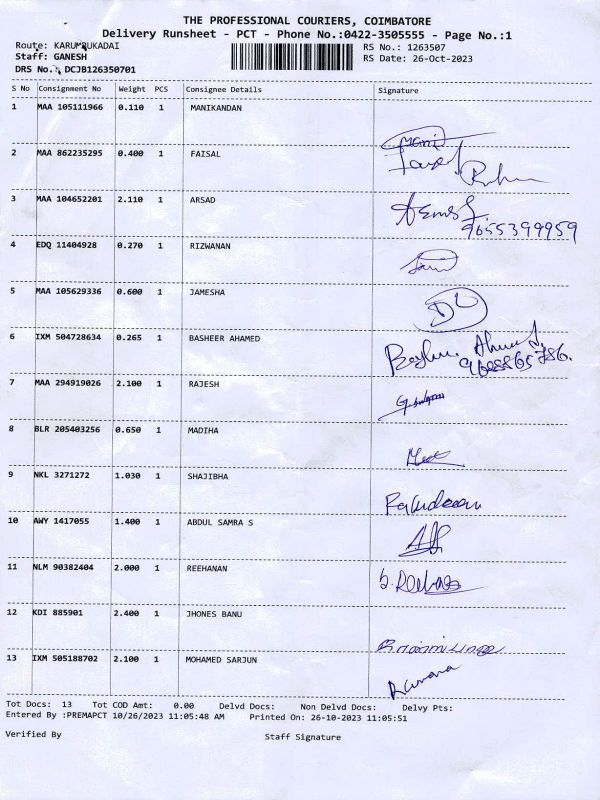 THE PROFESSIONAL COURIERS, COIMBATORE
Delivery Runsheet - PCT - Phone No.:0422-3505555 - Page No.:1
Route: KARUMBUKADAI RS No.: 1263507
Staff: GANESH RS Date: 26-Oct-2023
DRS No.: DCJB126350701
S No Consignment No Weight PCS Consignee Details Signature
1 MAA 105111966 0.110 1 MANIKANDAN
Mani
2 MAA 862235295 0.400 1 FAISAL
3 MAA 104652201 2.110 1 ARSAD
9655399959
4 EDQ 11404928 0.270 1 RIZWANAN
5 MAA 105629336 0.600 1 JAMESHA
6 IXM 504728634 0.265 1 BASHEER AHAMED
9688865786.
7 MAA 294919026 2.100 1 RAJESH
8 BLR 205403256 0.650 1 MADIHA
9 NKL 3271272 1.030 1 SHAJIBHA
10 AWY 1417055 1.400 1 ABDUL SAMRA S
11 NLM 90382404 2.000 1 REEHANAN
12 KDI 885901 2.400 1 JHONES BANU
13 IXM 505188702 2.100 1 MOHAMED SARJUN
Tot Docs: 13 Tot COD Amt: 0.00 Delvd Docs: Non Delvd Docs: Delvy Pts:
Entered By :PREMAPCT 10/26/2023 11:05:48 AM Printed On: 26-10-2023 11:05:51
Verified By Staff Signature